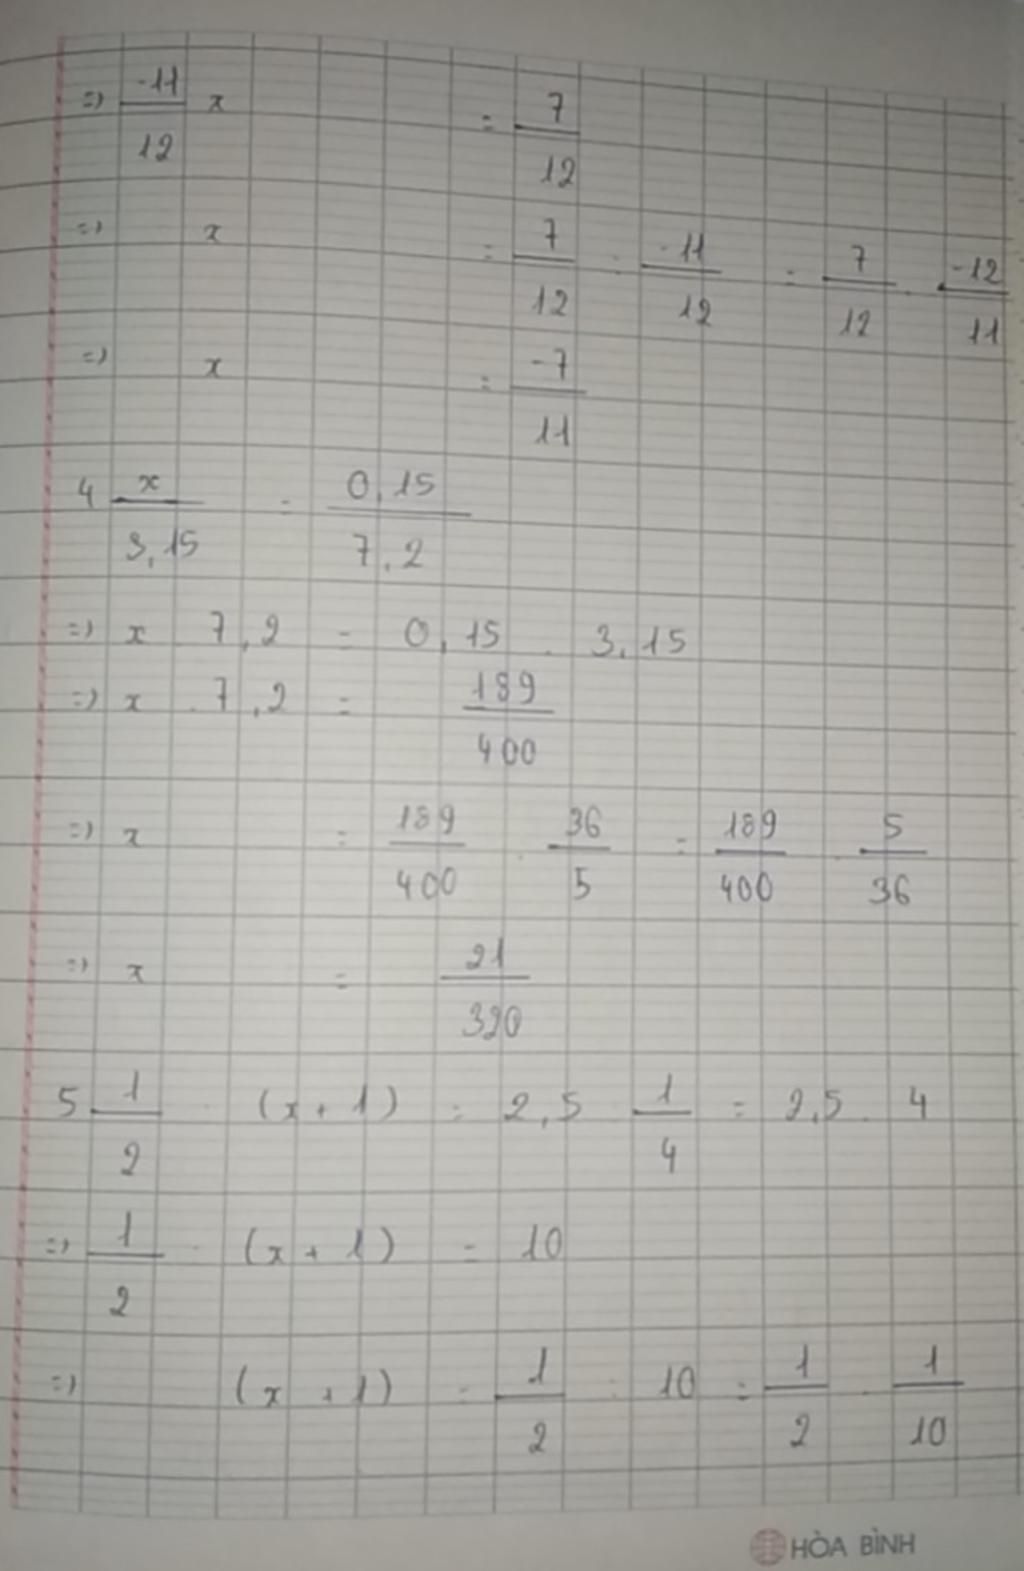 => -11/12 x = 7/12
=> x = 7/12 : -11/12 = 7/12 . -12/11
=> x = -7/11
4 x/3,15 = 0,15/7,2
=> x . 7,2 = 0,15 . 3,15
=> x . 7,2 = 189/400
=> x = 189/400 : 36/5 = 189/400 . 5/36
=> x = 21/320
5 1/2 : (x + 1) = 2,5 : 1/4 = 2,5 . 4
=> 1/2 : (x + 1) = 10
=> (x + 1) = 1/2 : 10 = 1/2 . 1/10
HÒA BÌNH